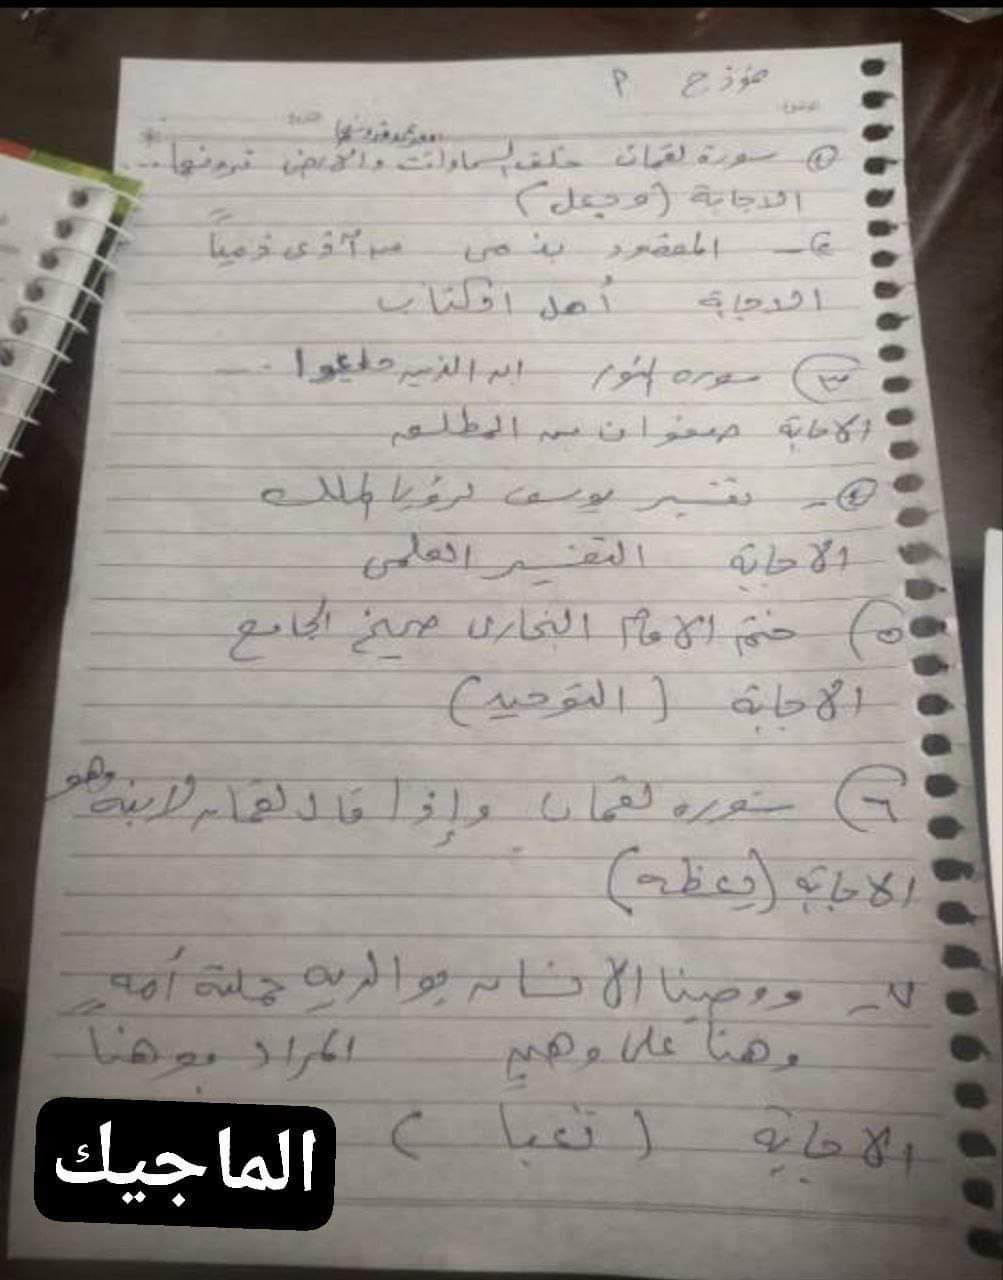 نموذج م
① سورة لقمان خلق السماوات والارض ترونها ...
الاجابة (وجعل)
٢- المقصود بذمى من آذى ذمياً
الاجابة أهل الكتاب
٣) سوره النور ان الذين ...
الاجابة صفوان بن المطلب
٤- تفسير يوسف لرؤيا الملك
الاجابة التفسير العلمى
٥) ختم الامام البخارى صحيح الجامع
الاجابة (التوحيد)
٦) سوره لقمان وإذا قال لقمان لابنه وهو
الاجابة (يعظه)
٧- ووصينا الانسان بوالديه حملته أمه
وهنا على وهن المراد بوهنا
الاجابة (تعبا)
الماجيك